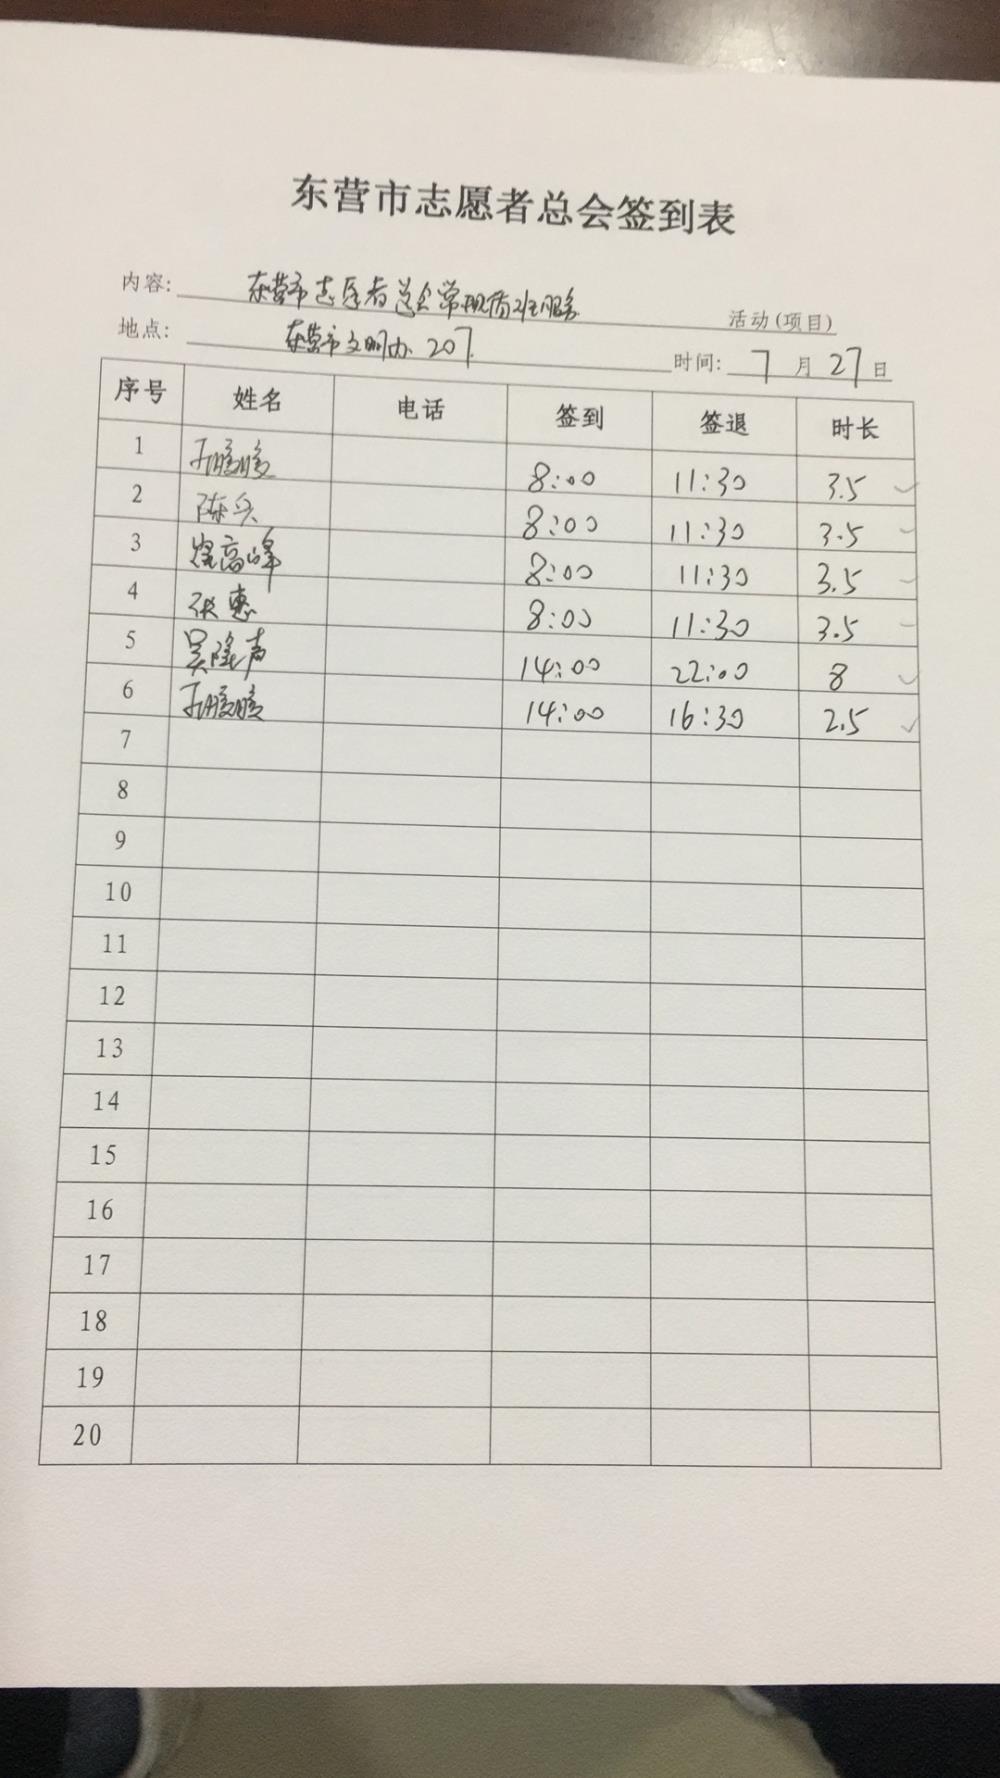 东营市志愿者总会签到表
内容: 东营市志愿者总会常规值班服务 活动(项目)
地点: 东营市文明办 207 时间: 7月27日
序号 姓名 电话 签到 签退 时长
1 8:00 11:30 3.5
2 陈 8:00 11:30 3.5
3 高峰 8:00 11:30 3.5
4 张惠 8:00 11:30 3.5
5 吴隆声 14:00 22:00 8
6 14:00 16:30 2.5
7
8
9
10
11
12
13
14
15
16
17
18
19
20